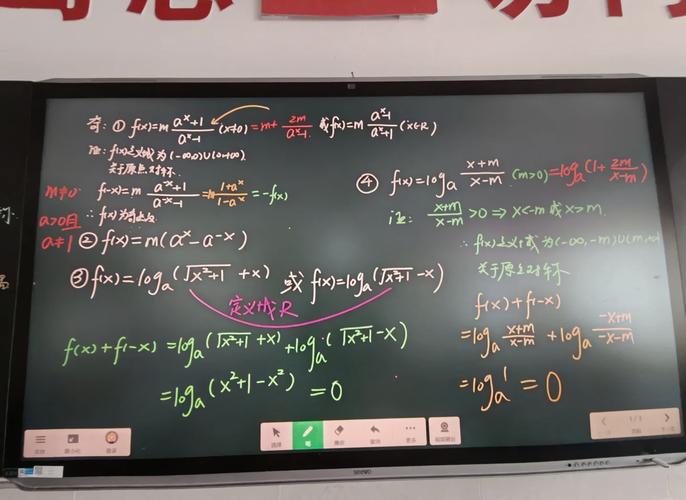 奇: ① f(x)=m (a^x+1)/(a^x-1) (x≠0) =m+ 2m/(a^x-1) 或 f(x)=m (a^x-1)/(a^x+1) (x∈R)
证: f(x)定义域为(-∞,0)∪(0,+∞)
关于原点对称
m≠0 f(-x)=m (a^-x+1)/(a^-x-1) =m (1+a^x)/(1-a^x) =-f(x)
a>0且 ∴f(x)为奇函数
a≠1 ② f(x)=m(a^x-a^-x)
③ f(x)=log_a(√(x²+1)+x) 或 f(x)=log_a(√(x²+1)-x)
定义域R
f(x)+f(-x)=log_a(√(x²+1)+x)+log_a(√(x²+1)-x)
=log_a(x²+1-x²) =0
④ f(x)=log_a (x+m)/(x-m) (m>0) =log_a(1+ 2m/(x-m))
证: (x+m)/(x-m) >0 ⇒ x<-m 或 x>m
∴f(x)定义域为(-∞,-m)∪(m,+∞)
关于原点对称
f(x)+f(-x)
=log_a (x+m)/(x-m) + log_a (-x+m)/(-x-m)
=log_a 1 =0
选择
笔
更多
1/1
seewo